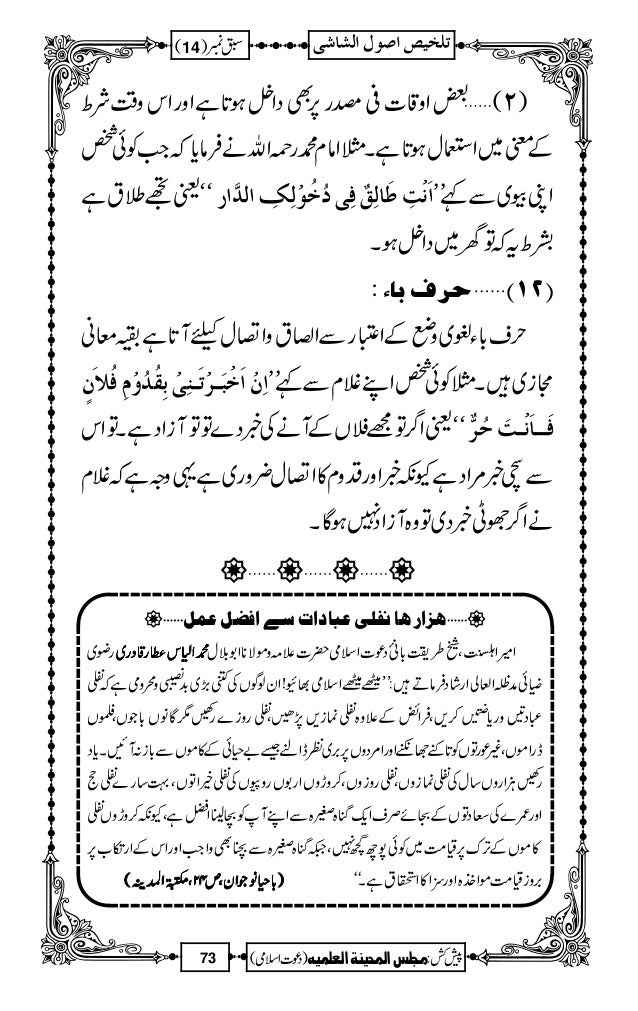 تلخیص اصول الشاشی سبق نمبر (14)
(۲)......بعض اوقات فی مصدر پر بھی داخل ہوتا ہے اور اس وقت شرط
کے معنی میں استعمال ہوتا ہے۔ مثلا امام محمد رحمہ اللہ نے فرمایا کہ جب کوئی شخص
اپنی بیوی سے کہے ’’اَنْتِ طَالِقٌ فِی دُخُوْلِکِ الدَّار ‘‘ یعنی تجھے طلاق ہے
بشرط یہ کہ تو گھر میں داخل ہو۔
(۱۲)......حرف باء :
حرف باء لغوی وضع کے اعتبار سے الصاق و اتصال کیلئے آتا ہے بقیہ معانی
مجازی ہیں۔ مثلا کوئی شخص اپنے غلام سے کہے ’’اِنْ اَخْبَرْتَنِیْ بِقُدُوْمِ فُلاَنٍ
فَـاَنْـتَ حُرٌّ ‘‘ یعنی اگر تو مجھے فلاں کے آنے کی خبر دے تو تو آزاد ہے۔ تو اس
سے سچی خبر مراد ہے کیونکہ خبر اور قدوم کا اتصال ضروری ہے یہی وجہ ہے کہ غلام
نے اگر جھوٹی خبر دی تو وہ آزاد نہیں ہوگا ۔
......ھزارھا نفلی عبادات سے افضل عمل......
امیر اہلسنت ، شیخ طریقت بانیٔ دعوت اسلامی حضرت علامہ و مولانا ابو بلال محمد الیاس عطار قادری رضوی
ضیائی مدظلہ العالی ارشاد فرماتے ہیں: ’’میٹھے میٹھے اسلامی بھائیو! ان لوگوں کی کتنی بڑی بدنصیبی و محرومی ہے کہ نفلی
عبادتیں و ریاضتیں کریں، فرائض کے علاوہ نفلی نمازیں پڑھیں، نفلی روزے رکھیں مگر گانوں باجوں، فلموں
ڈراموں، غیر عورتوں کو تاکنے جھانکنے اور امردوں پر بری نظر ڈالنے جیسے بے حیائی کے کاموں سے باز نہ آئیں۔ یاد
رکھیں ہزاروں سال کی نفلی نمازوں، نفلی روزوں، کروڑوں اربوں روپیوں کی نفلی خیراتوں ، بہت سارے نفلی حج
اور عمرے کی سعادتوں کے بجائے صرف ایک گناہ صغیرہ سے اپنے آپ کو بچا لینا افضل ہے، کیونکہ کروڑوں نفلی
کاموں کے ترک پر قیامت میں کوئی پوچھ گچھ نہیں، جبکہ گناہ صغیرہ سے بچنا بھی واجب اور اس کے ارتکاب پر
بروز قیامت مواخذہ اور سزا کا استحقاق ہے۔‘‘ (باحیا نوجوان، ص۲۴، مکتبۃ المدینہ)
پیش کش: مجلس المدینۃ العلمیہ (دعوت اسلامی) 73